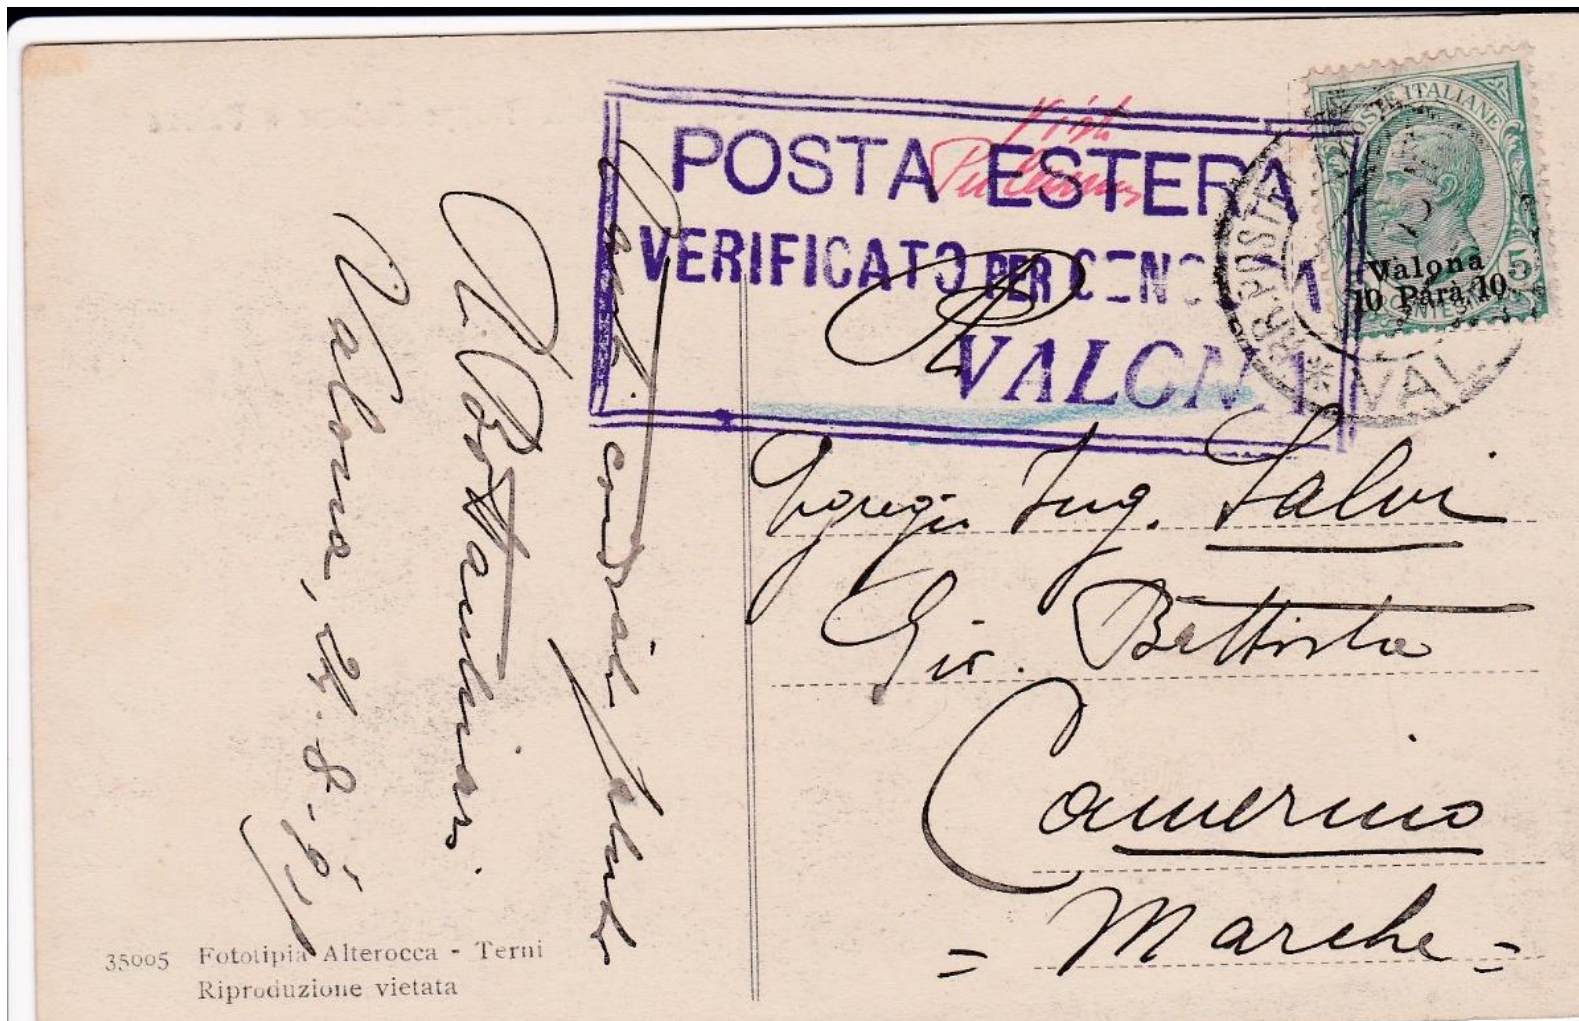 POSTA ESTERA
VERIFICATO PER CENS A
VALONA
POSTE ITALIANE
5
Valona
10 Parà 10
VAL
Ing. Salvi
Gio. Battista
Camerino
= Marche =
cordiali saluti
Valona, 8-
35005 Fototipia Alterocca - Terni
Riproduzione vietata